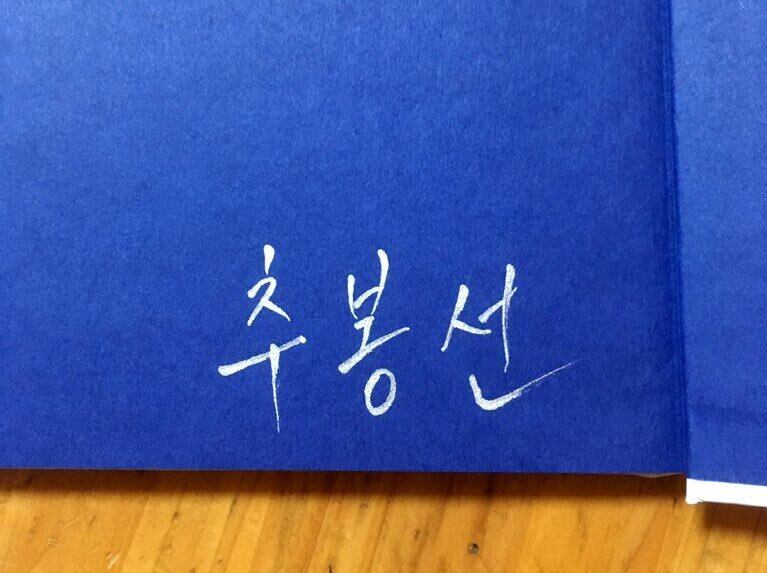 추봉선